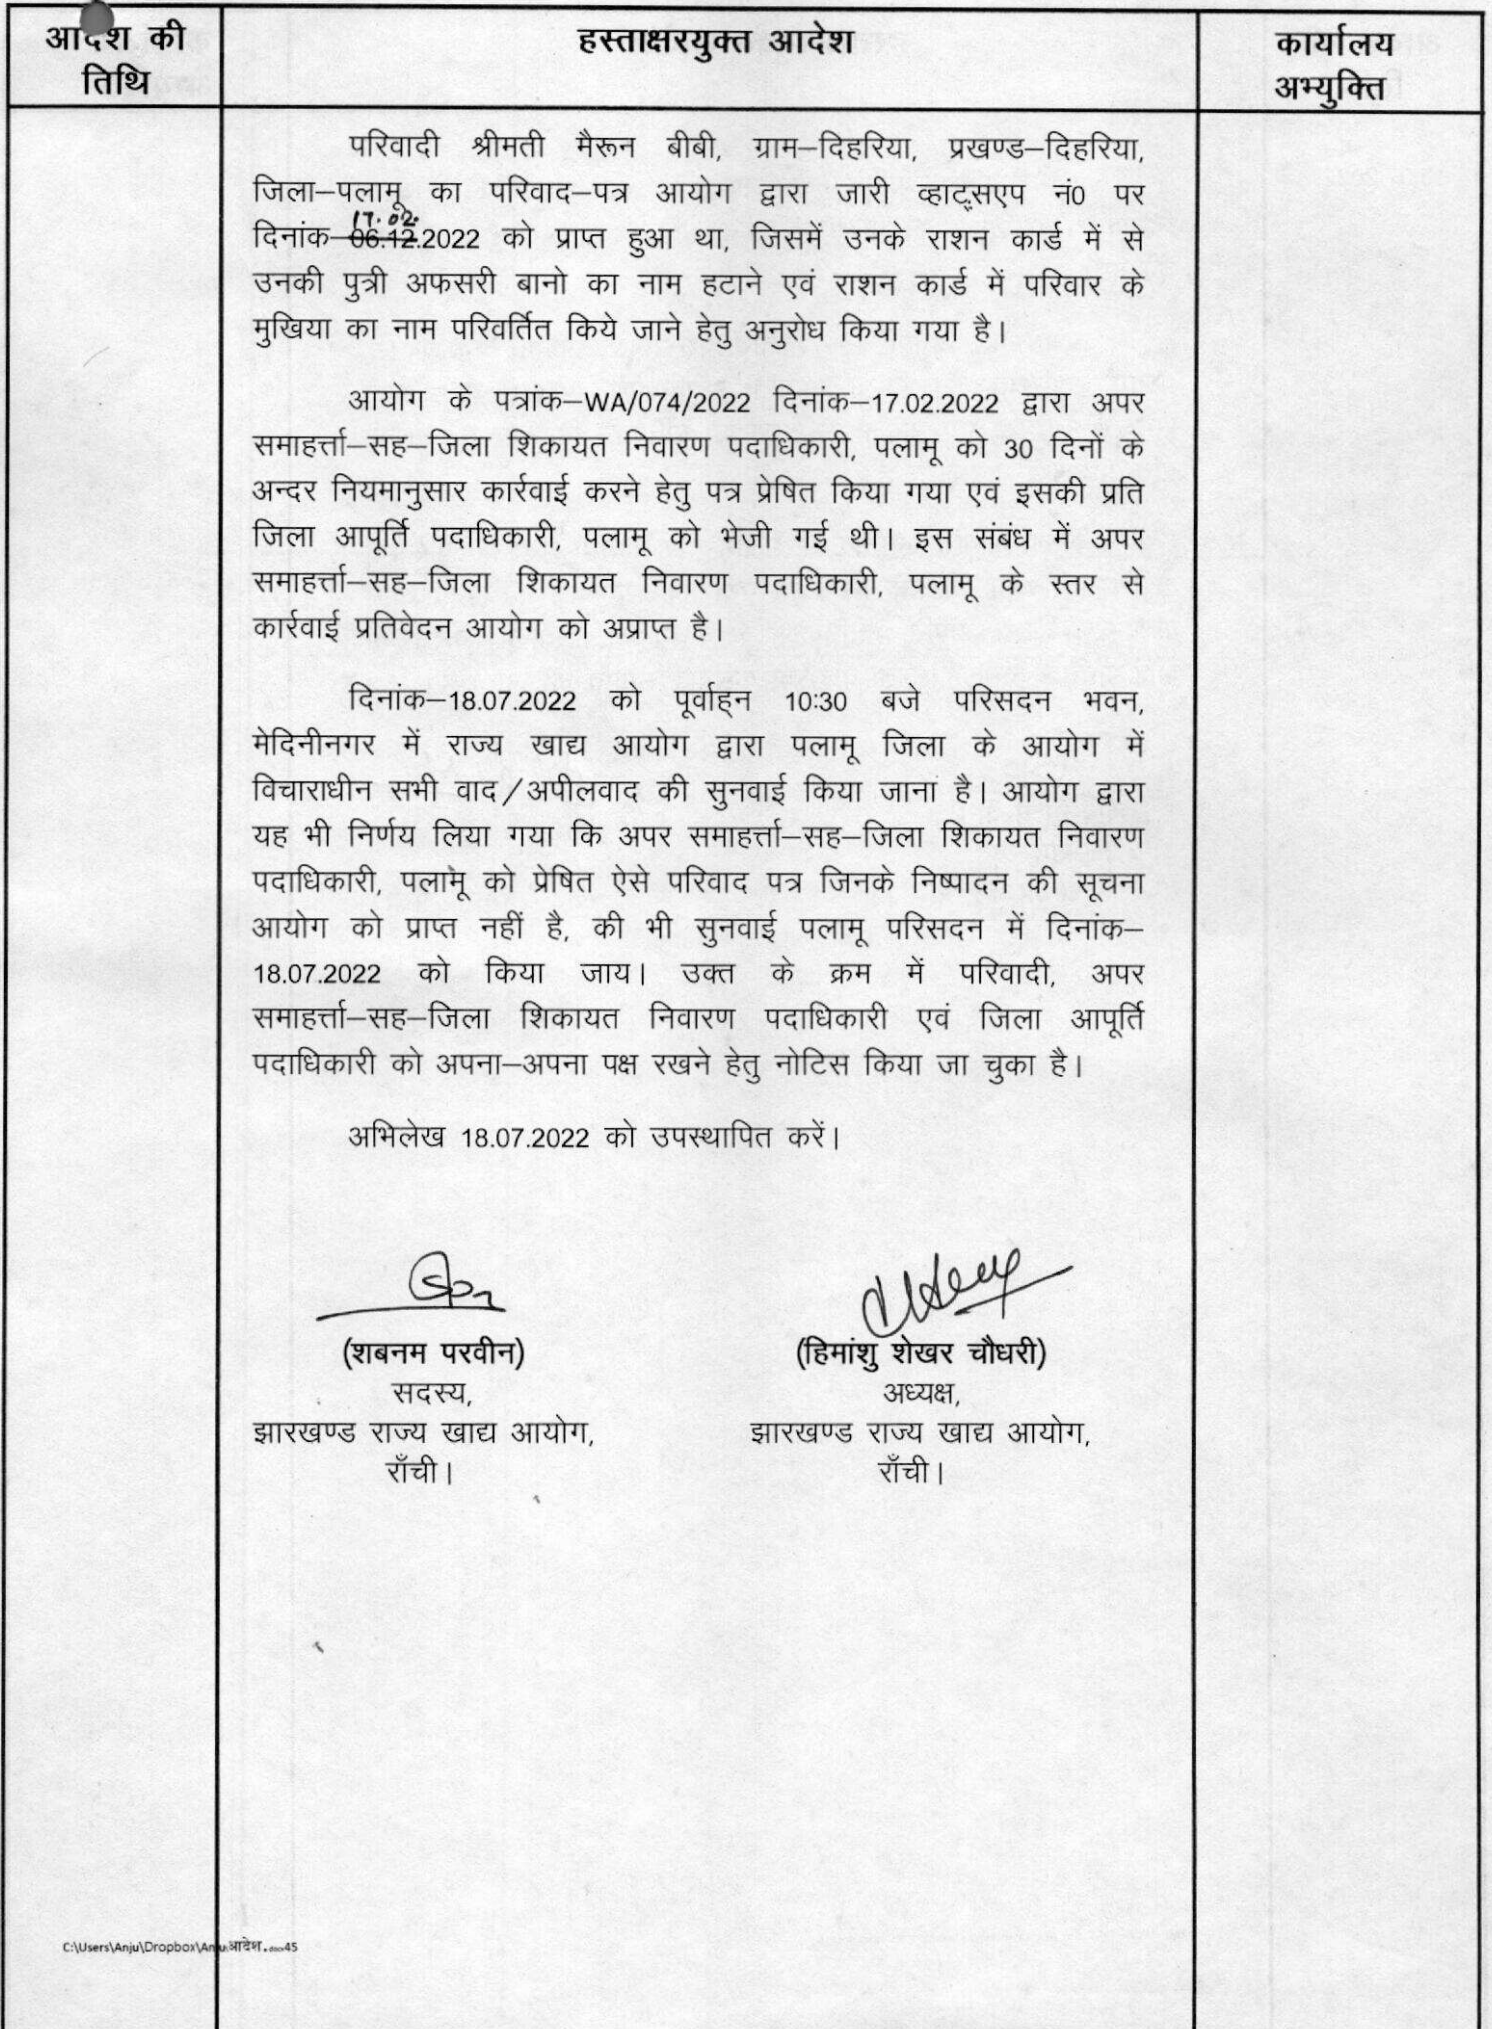 आदेश की
तिथि
हस्ताक्षरयुक्त आदेश
कार्यालय
अभ्युक्ति
परिवादी श्रीमती मैरून बीबी, ग्राम–दिहरिया, प्रखण्ड–दिहरिया,
जिला–पलामू का परिवाद–पत्र आयोग द्वारा जारी व्हाट्सएप नं0 पर
17.02.
दिनांक–06.12.2022 को प्राप्त हुआ था, जिसमें उनके राशन कार्ड में से
उनकी पुत्री अफसरी बानो का नाम हटाने एवं राशन कार्ड में परिवार के
मुखिया का नाम परिवर्तित किये जाने हेतु अनुरोध किया गया है।
आयोग के पत्रांक–WA/074/2022 दिनांक–17.02.2022 द्वारा अपर
समाहर्त्ता–सह–जिला शिकायत निवारण पदाधिकारी, पलामू को 30 दिनों के
अन्दर नियमानुसार कार्रवाई करने हेतु पत्र प्रेषित किया गया एवं इसकी प्रति
जिला आपूर्ति पदाधिकारी, पलामू को भेजी गई थी। इस संबंध में अपर
समाहर्त्ता–सह–जिला शिकायत निवारण पदाधिकारी, पलामू के स्तर से
कार्रवाई प्रतिवेदन आयोग को अप्राप्त है।
दिनांक–18.07.2022 को पूर्वाह्न 10:30 बजे परिसदन भवन,
मेदिनीनगर में राज्य खाद्य आयोग द्वारा पलामू जिला के आयोग में
विचाराधीन सभी वाद/अपीलवाद की सुनवाई किया जाना है। आयोग द्वारा
यह भी निर्णय लिया गया कि अपर समाहर्त्ता–सह–जिला शिकायत निवारण
पदाधिकारी, पलामू को प्रेषित ऐसे परिवाद पत्र जिनके निष्पादन की सूचना
आयोग को प्राप्त नहीं है, की भी सुनवाई पलामू परिसदन में दिनांक–
18.07.2022 को किया जाय। उक्त के क्रम में परिवादी, अपर
समाहर्त्ता–सह–जिला शिकायत निवारण पदाधिकारी एवं जिला आपूर्ति
पदाधिकारी को अपना–अपना पक्ष रखने हेतु नोटिस किया जा चुका है।
अभिलेख 18.07.2022 को उपस्थापित करें।
(शबनम परवीन)
सदस्य,
झारखण्ड राज्य खाद्य आयोग,
राँची।
(हिमांशु शेखर चौधरी)
अध्यक्ष,
झारखण्ड राज्य खाद्य आयोग,
राँची।
C:\Users\Anju\Dropbox\Anju\आदेश.docx45